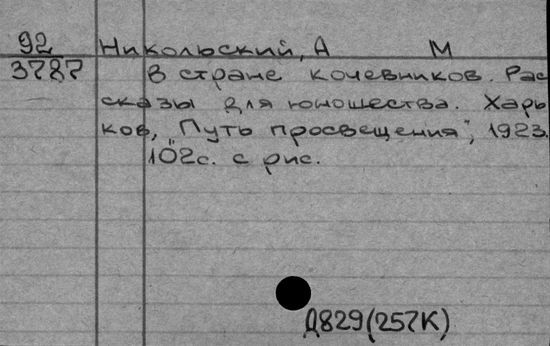 92 Никольский, А М
3787 В стране кочевников. Рас
сказы для юношества. Харь
ков, "Путь просвещения", 1923.
102с. с рис.
Д829(257К)